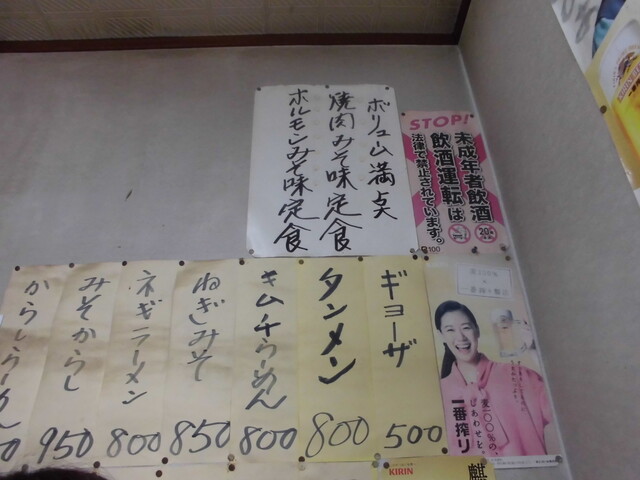 ボリューム満点
焼肉みそ味定食
ホルモンみそ味定食
STOP!
未成年者飲酒
飲酒運転は
法律で禁止されています。
ギョーザ
500
タンメン
800
キムチらーめん
800
ねぎみそ
850
ネギラーメン
800
みそからし
950
からしらーめん
麦100%の、
しあわせを。
一番搾り
KIRIN
麒